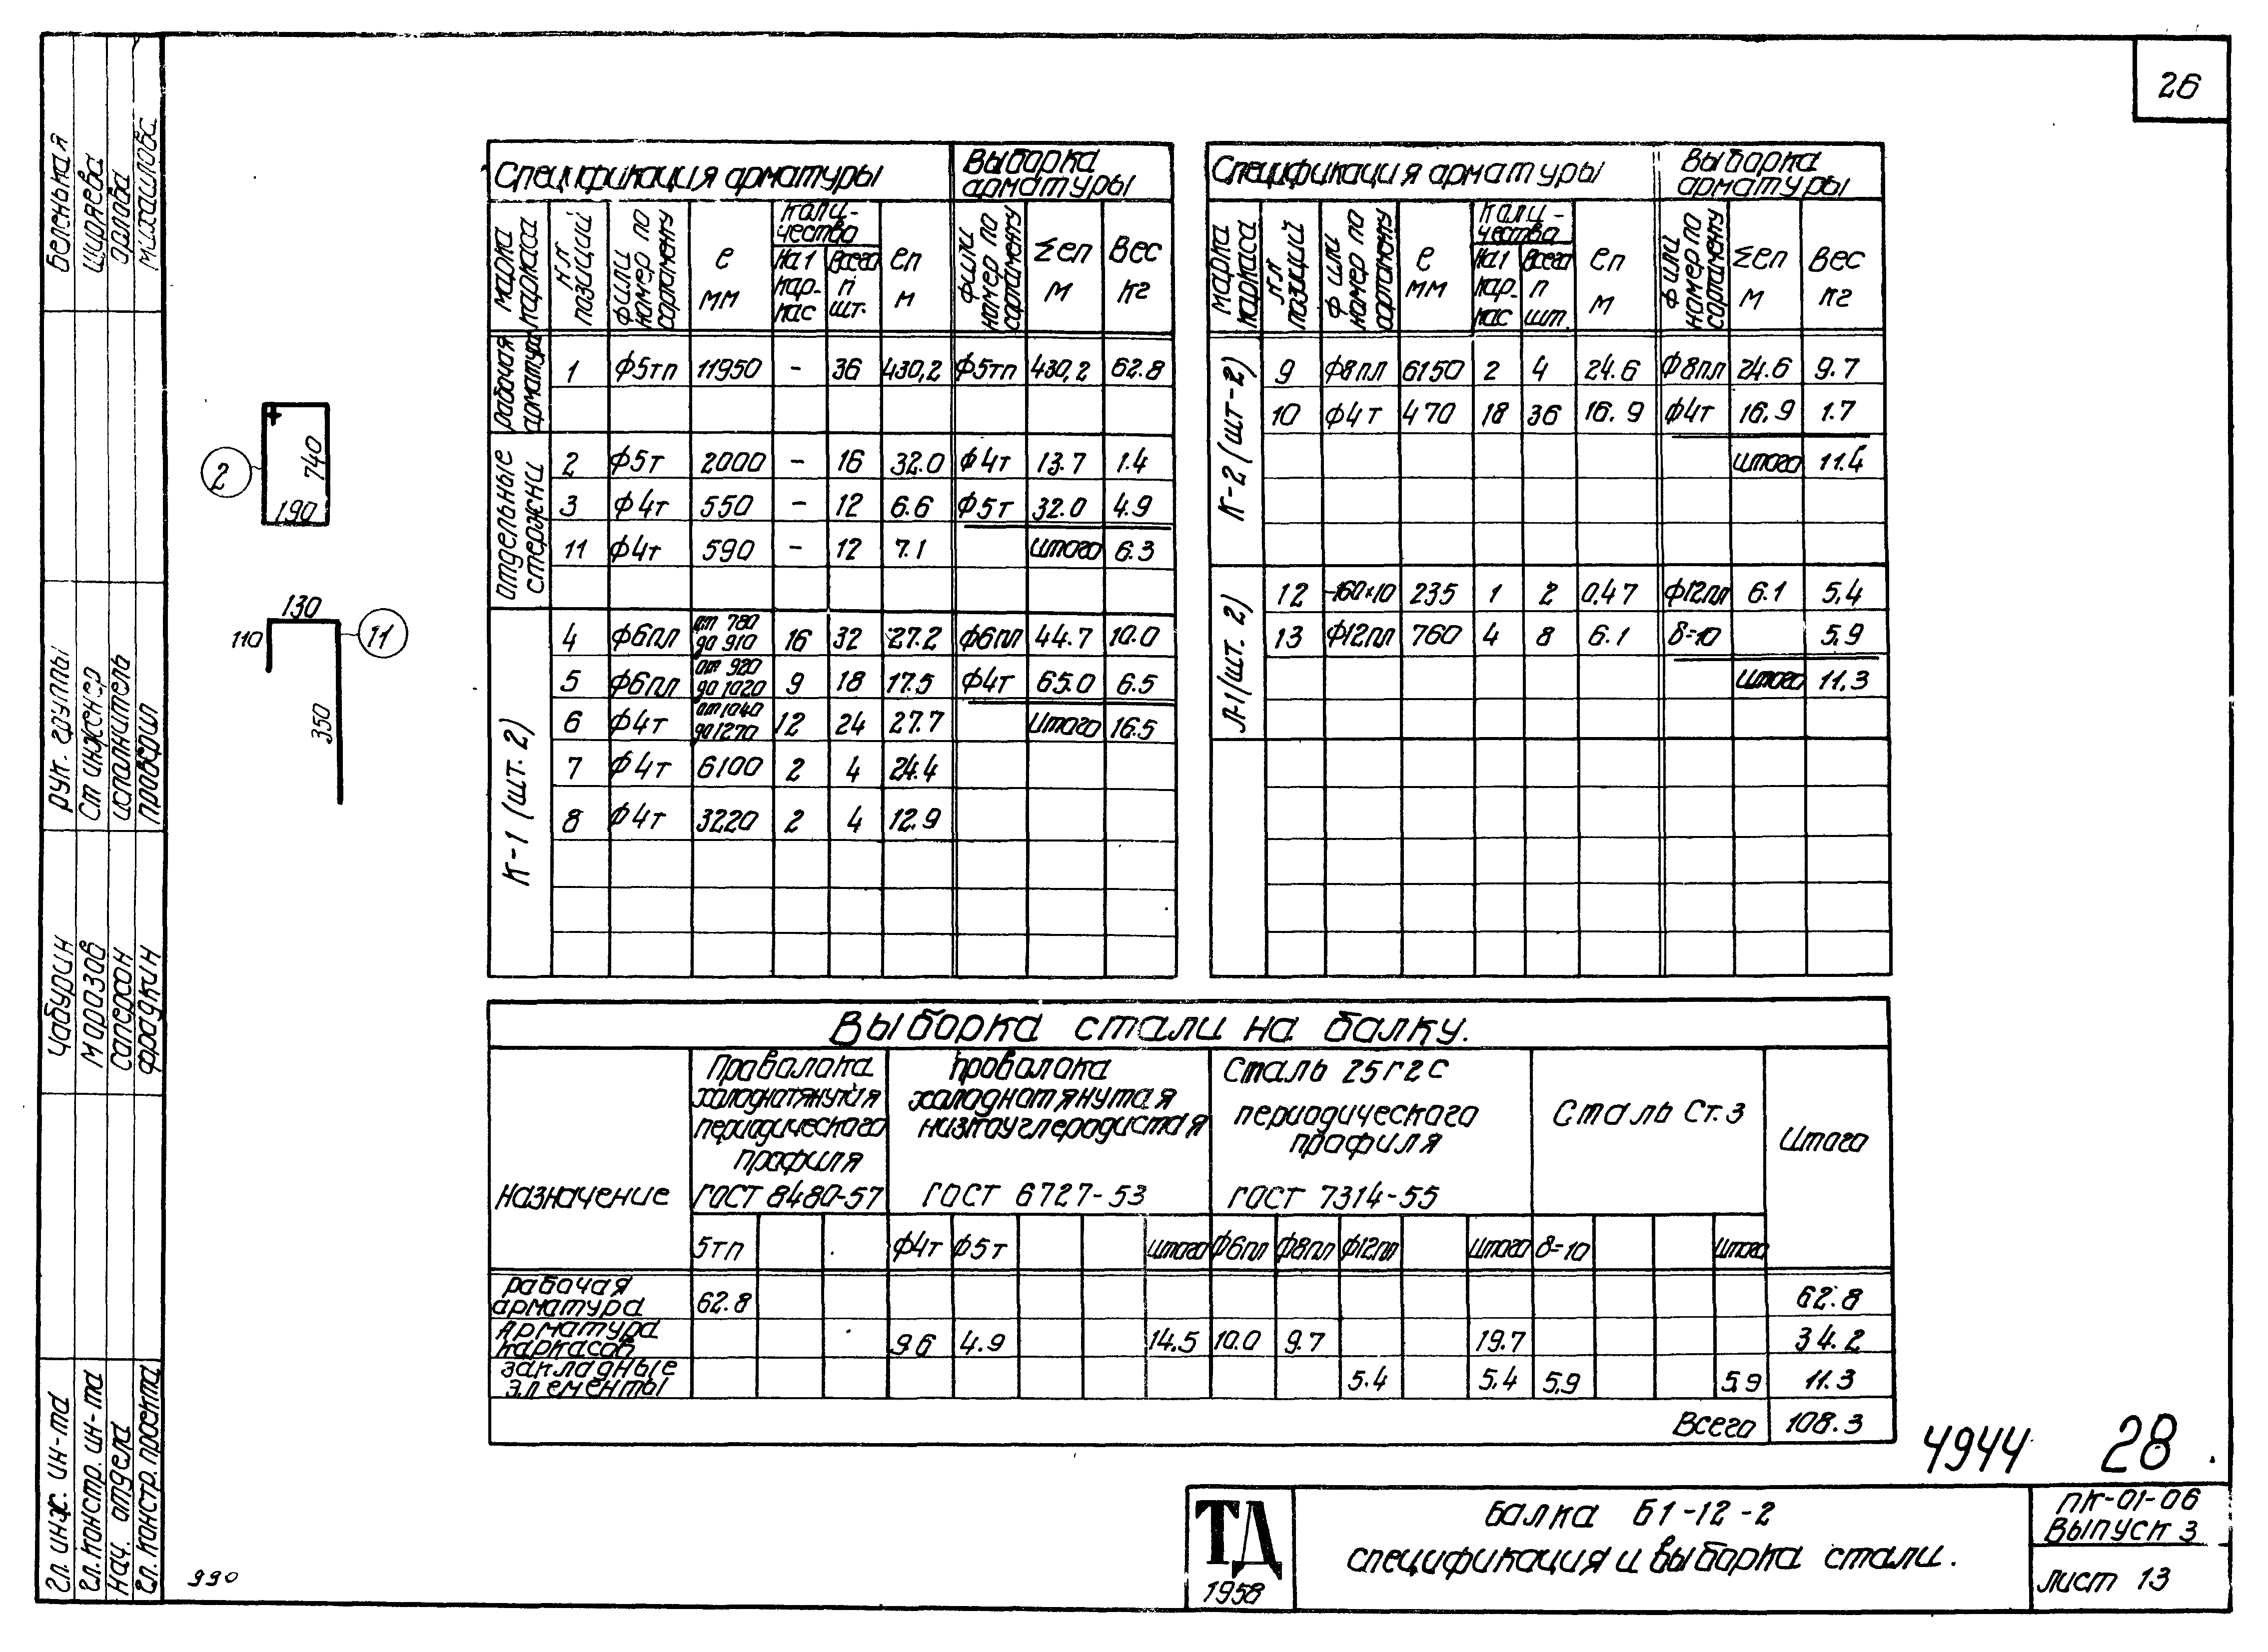 26
Спецификация арматуры | Выборка арматуры
Марка каркаса | NN позиций | Ф или номер по сортаменту | е мм | Количество | еп м | Ф или номер по сортаменту | Σеп м | Вес кг
На 1 каркас | Всего п шт.
Рабочая арматура
1 | Ф5тп | 11950 | - | 36 | 430,2 | Ф5тп | 430,2 | 62.8
Отдельные стержни
2 | Ф5т | 2000 | - | 16 | 32.0 | Ф4т | 13.7 | 1.4
3 | Ф4т | 550 | - | 12 | 6.6 | Ф5т | 32.0 | 4.9
11 | Ф4т | 590 | - | 12 | 7.1 | Итого | 6.3
К-1 (шт. 2)
4 | Ф6пл | от 780 до 910 | 16 | 32 | 27.2 | Ф6пл | 44.7 | 10.0
5 | Ф6пл | от 920 до 1020 | 9 | 18 | 17.5 | Ф4т | 65.0 | 6.5
6 | Ф4т | от 1040 до 1270 | 12 | 24 | 27.7 | Итого | 16.5
7 | Ф4т | 6100 | 2 | 4 | 24.4
8 | Ф4т | 3220 | 2 | 4 | 12.9
Спецификация арматуры | Выборка арматуры
Марка каркаса | NN позиций | Ф или номер по сортаменту | е мм | Количества | еп м | Ф или номер по сортаменту | Σеп м | Вес кг
На 1 каркас | Всего п шт.
К-2 (шт-2)
9 | Ф8пл | 6150 | 2 | 4 | 24.6 | Ф8пл | 24.6 | 9.7
10 | Ф4т | 470 | 18 | 36 | 16.9 | Ф4т | 16.9 | 1.7
Итого | 11.4
Л-1 (шт. 2)
12 | -160×10 | 235 | 1 | 2 | 0,47 | Ф12пл | 6.1 | 5,4
13 | Ф12пл | 760 | 4 | 8 | 6.1 | δ=10 | 5.9
Итого | 11.3
2
740
190
130
110
11
350
Выборка стали на балку.
Назначение | Проволока холоднотянутая периодического профиля ГОСТ 8480-57 | Проволока холоднотянутая низкоуглеродистая ГОСТ 6727-53 | Сталь 25Г2С периодического профиля ГОСТ 7314-55 | Сталь Ст.3 | Итого
5тп | Ф4т | Ф5т | Итого | Ф6пл | Ф8пл | Ф12пл | Итого | δ=10 | Итого
Рабочая арматура | 62.8 | 62.8
Арматура каркасов | 9 6 | 4.9 | 14.5 | 10.0 | 9.7 | 19.7 | 34.2
Закладные элементы | 5.4 | 5,4 | 5,9 | 5,9 | 11.3
Всего | 108.3
4944 28
ТД
1958
Балка Б1-12-2
Спецификация и выборка стали.
ПК-01-06
Выпуск 3
Лист 13
990
Гл. инж. ин-та Чабурин Рук. группы Беленькая
Гл. констр. ин-та Морозов Ст инженер Ширяева
Нач. отдела Саперсон Исполнитель Орлова
Гл. констр. проекта Фрадкин Проверил